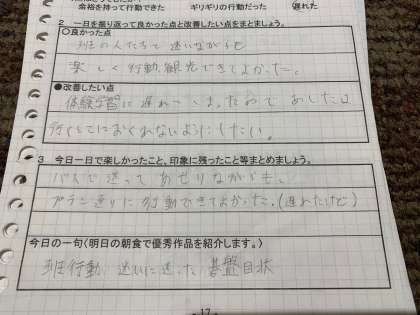 余裕を持って行動できた ギリギリの行動だった 遅れた
2 一日を振り返って良かった点と改善したい点をまとめましょう。
○良かった点
班の人たちと迷いながらも
楽しく行動、観光できてよかった。
●改善したい点
体験学習に遅れてしまったのであしたは
行くとこにおくれないようにしたい。
3 今日一日で楽しかったこと、印象に残ったこと等まとめましょう。
バスで迷ってあせりながらも、
プラン通りに行動できてよかった。(遅れたけど)
今日の一句〈明日の朝食で優秀作品を紹介します。〉
班行動 迷いに迷った 碁盤目状
- 17 -